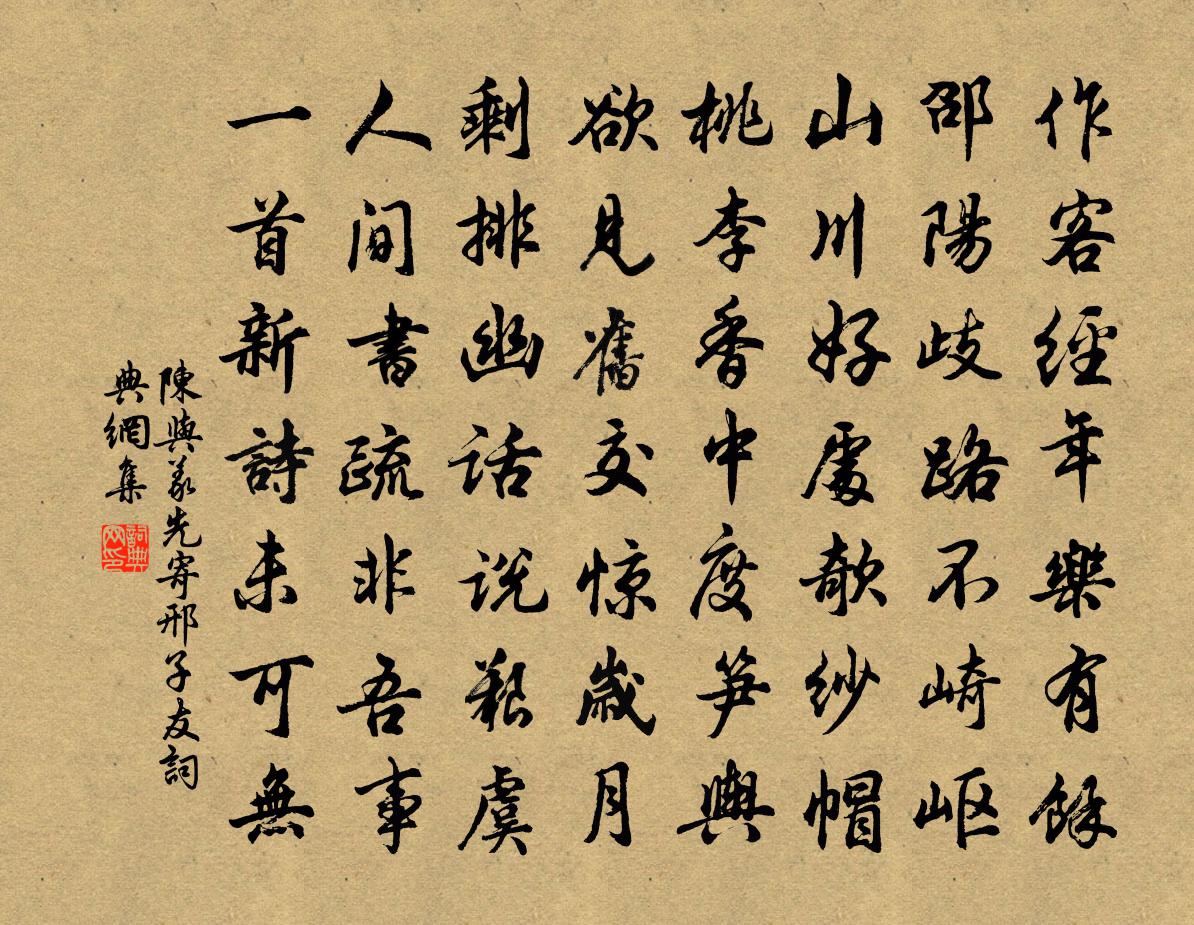 作客經年樂有餘
邵陽歧路不崎岖
山川好處欹紗帽
桃李香中度笋輿
欲見舊交惊歲月
剩排幽话说艱虞
人間書疏非吾事
一首新詩未可無
陳與義先寄邢子友詞
典網集
詞典网印